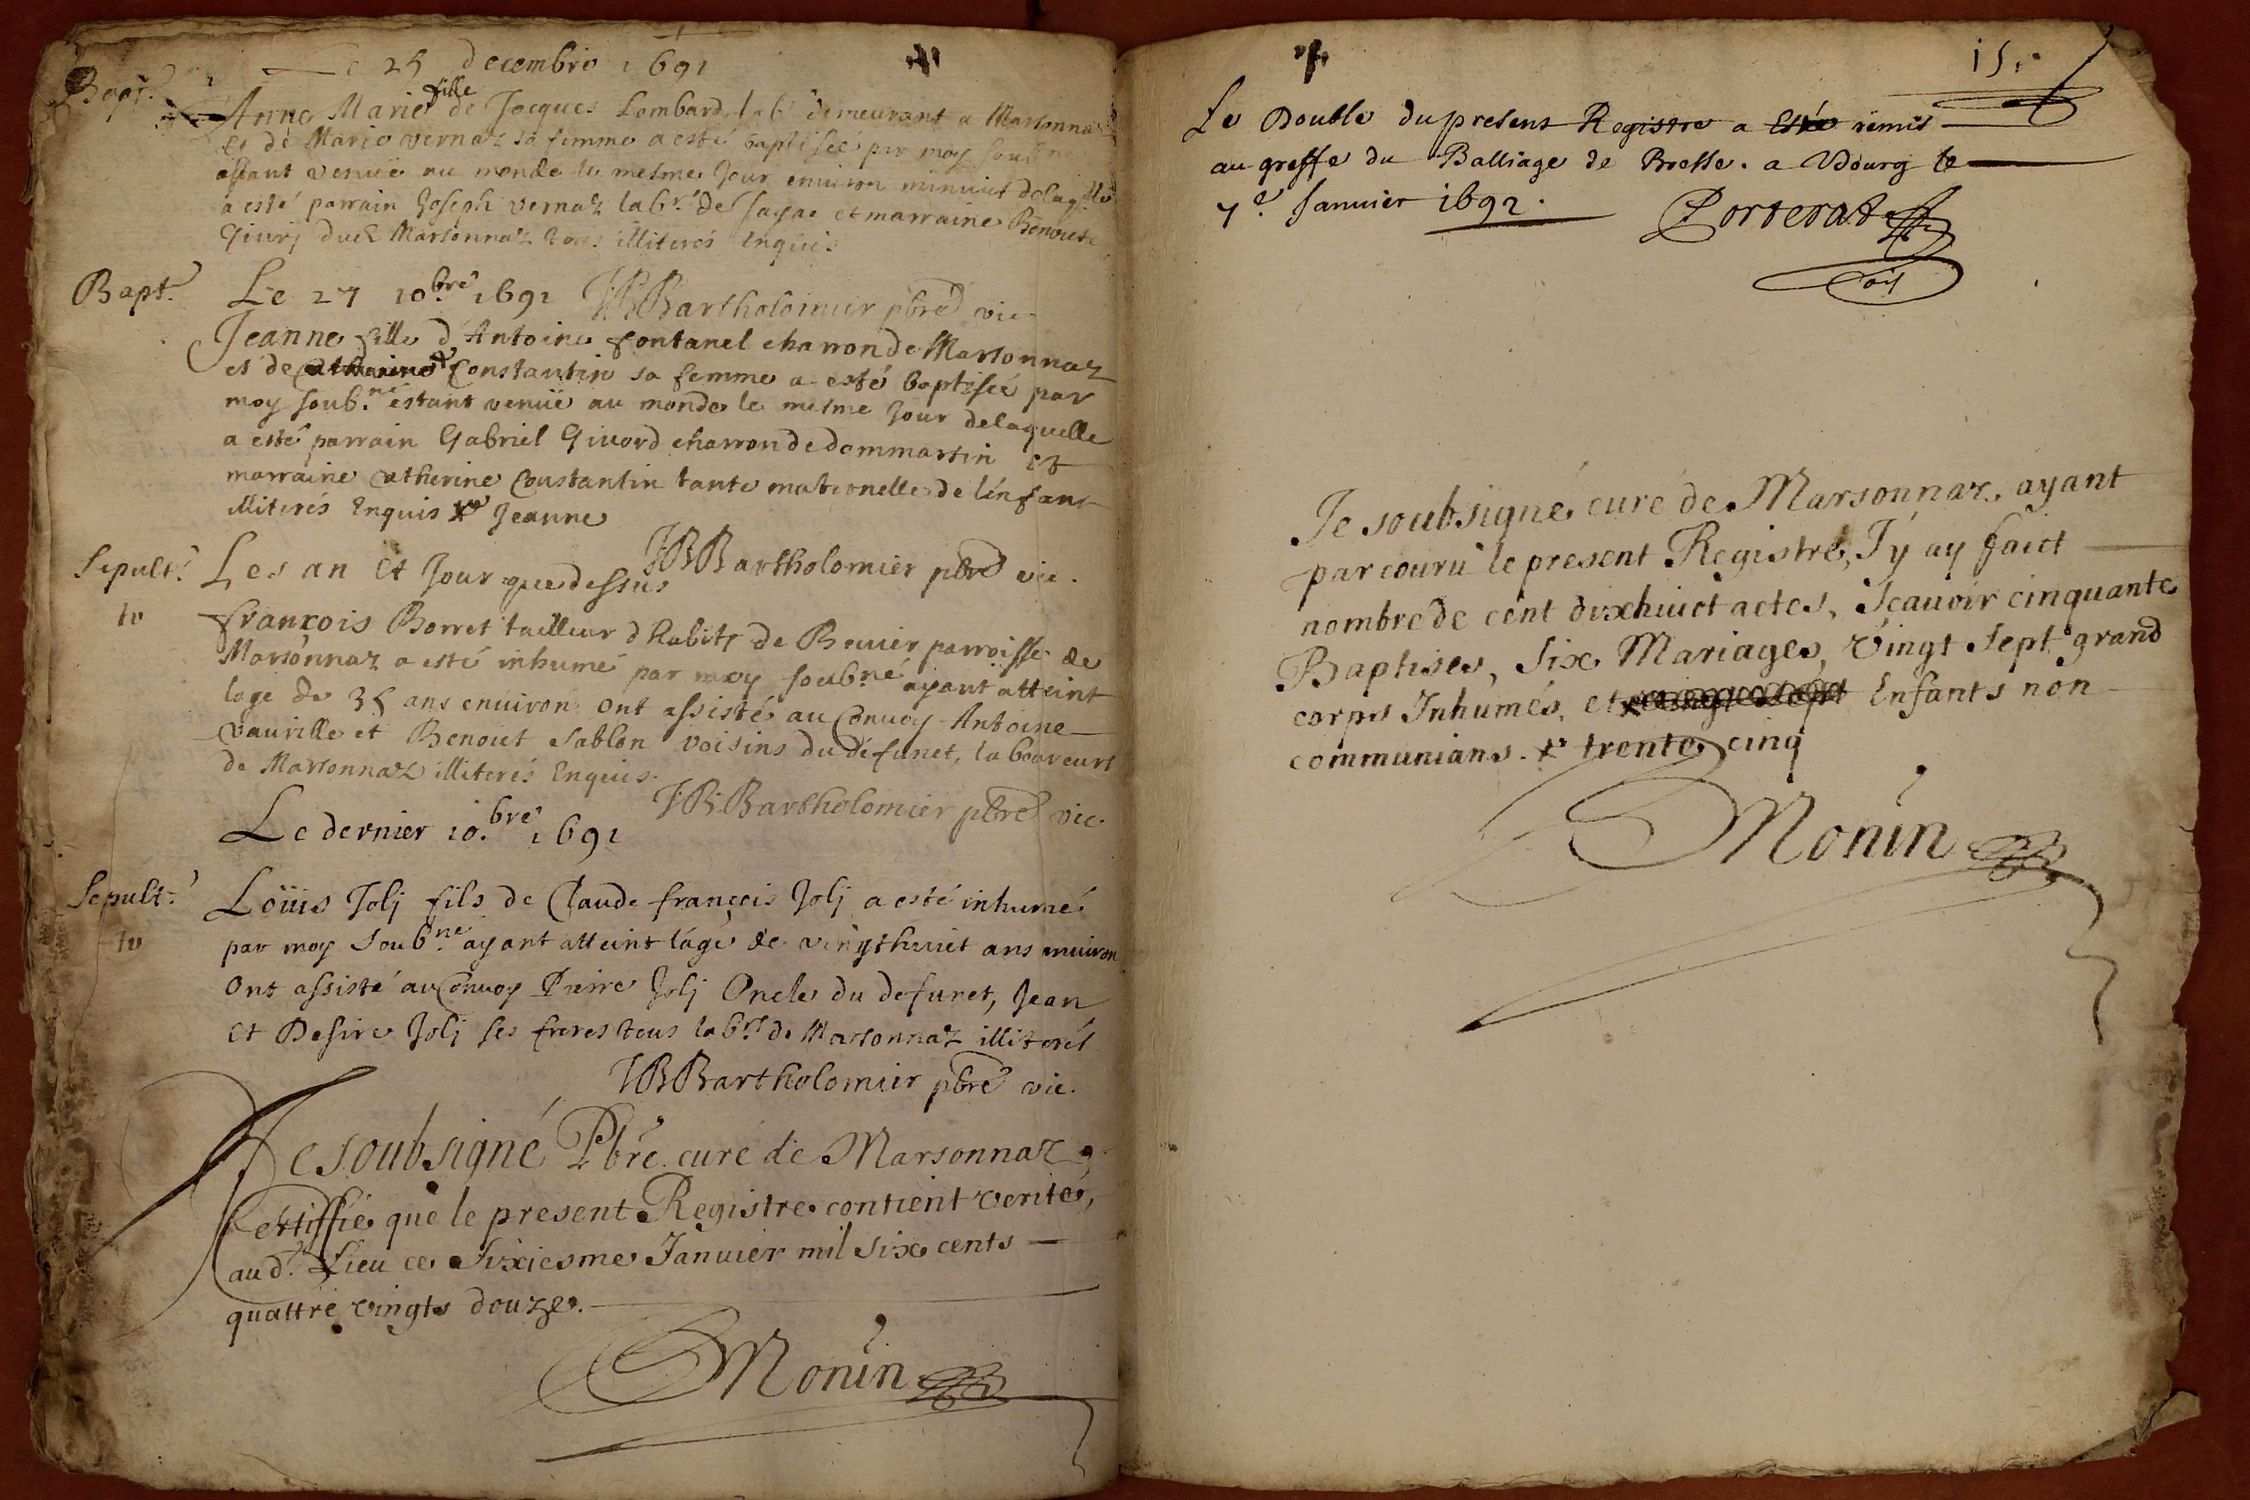 25 decembre 1691
Bapt.
fille
Anne Marie de Jacques Lombard lab. demeurant a Marsonna
et de Marie vernaz sa femme a esté baptisée par moy soub
estant venüe au monde le mesme Jour environ minuict delaqlle
a esté parrain Joseph vernaz labr. de Jayac et marraine Benoite
Givrj dud Marsonnaz tous illiterés Enquis
JBBartholomier pbre vic.
Bapt.
Le 27 10.bre 1691
Jeanne fille d'Antoine fontanel charron de Marsonnaz
et de Constantin sa femme a esté baptisée par
moy soub.né estant venüe au monde le mesme Jour delaquelle
a esté parrain Gabriel Givord charron de dommartin et
marraine Catherine Constantin tante maternelle de lenfant
illiterés Enquis Jeanne
JBBartholomier pbre vic.
Sepult.
Les an et Jour que dessus
françois Borret tailleur dhabits de Beuier parroisse de
Marsonnaz a esté inhumé par moy soub.né ayant atteint
lage de 35 ans environ ont assisté au Convoy Antoine
vauville et Benoit Sablon voisins du défunct, laboureurs
de Marsonnaz illiterés Enquis.
JBBartholomier pbre vic.
Le dernier 10.bre 1691
Sepult.
Loüis Jolj fils de Claude françois Jolj a esté inhumé
par moy Soub.né ayant atteint lagé de vingthuict ans enuiron
Ont assisté au Convoy Pierre Jolj Oncle du defunct, Jean
et Desire Jolj ses freres tous labrs de Marsonnaz illiterés
JBBartholomier pbre vic.
Je soubsigné Pbre curé de Marsonnaz
Certiffie que le present Registre contient verité,
aud. Lieu ce Sixiesme Januier mil six cents
quattre vingts douze.
Monin
15
Le Double du present Registre a Esté remis
au greffe du Balliage de Bresse. a Bourg le
7e Januier 1692.
Porterat
Je soubsigné curé de Marsonnaz, ayant
parcouru le present Registre, J'y ay faict
nombre de cent dixhuict actes, Scauoir cinquante
Baptises, Six Mariages, vingt sept grand
corps Inhumés, et Enfants non
communians. trente cinq
Monin